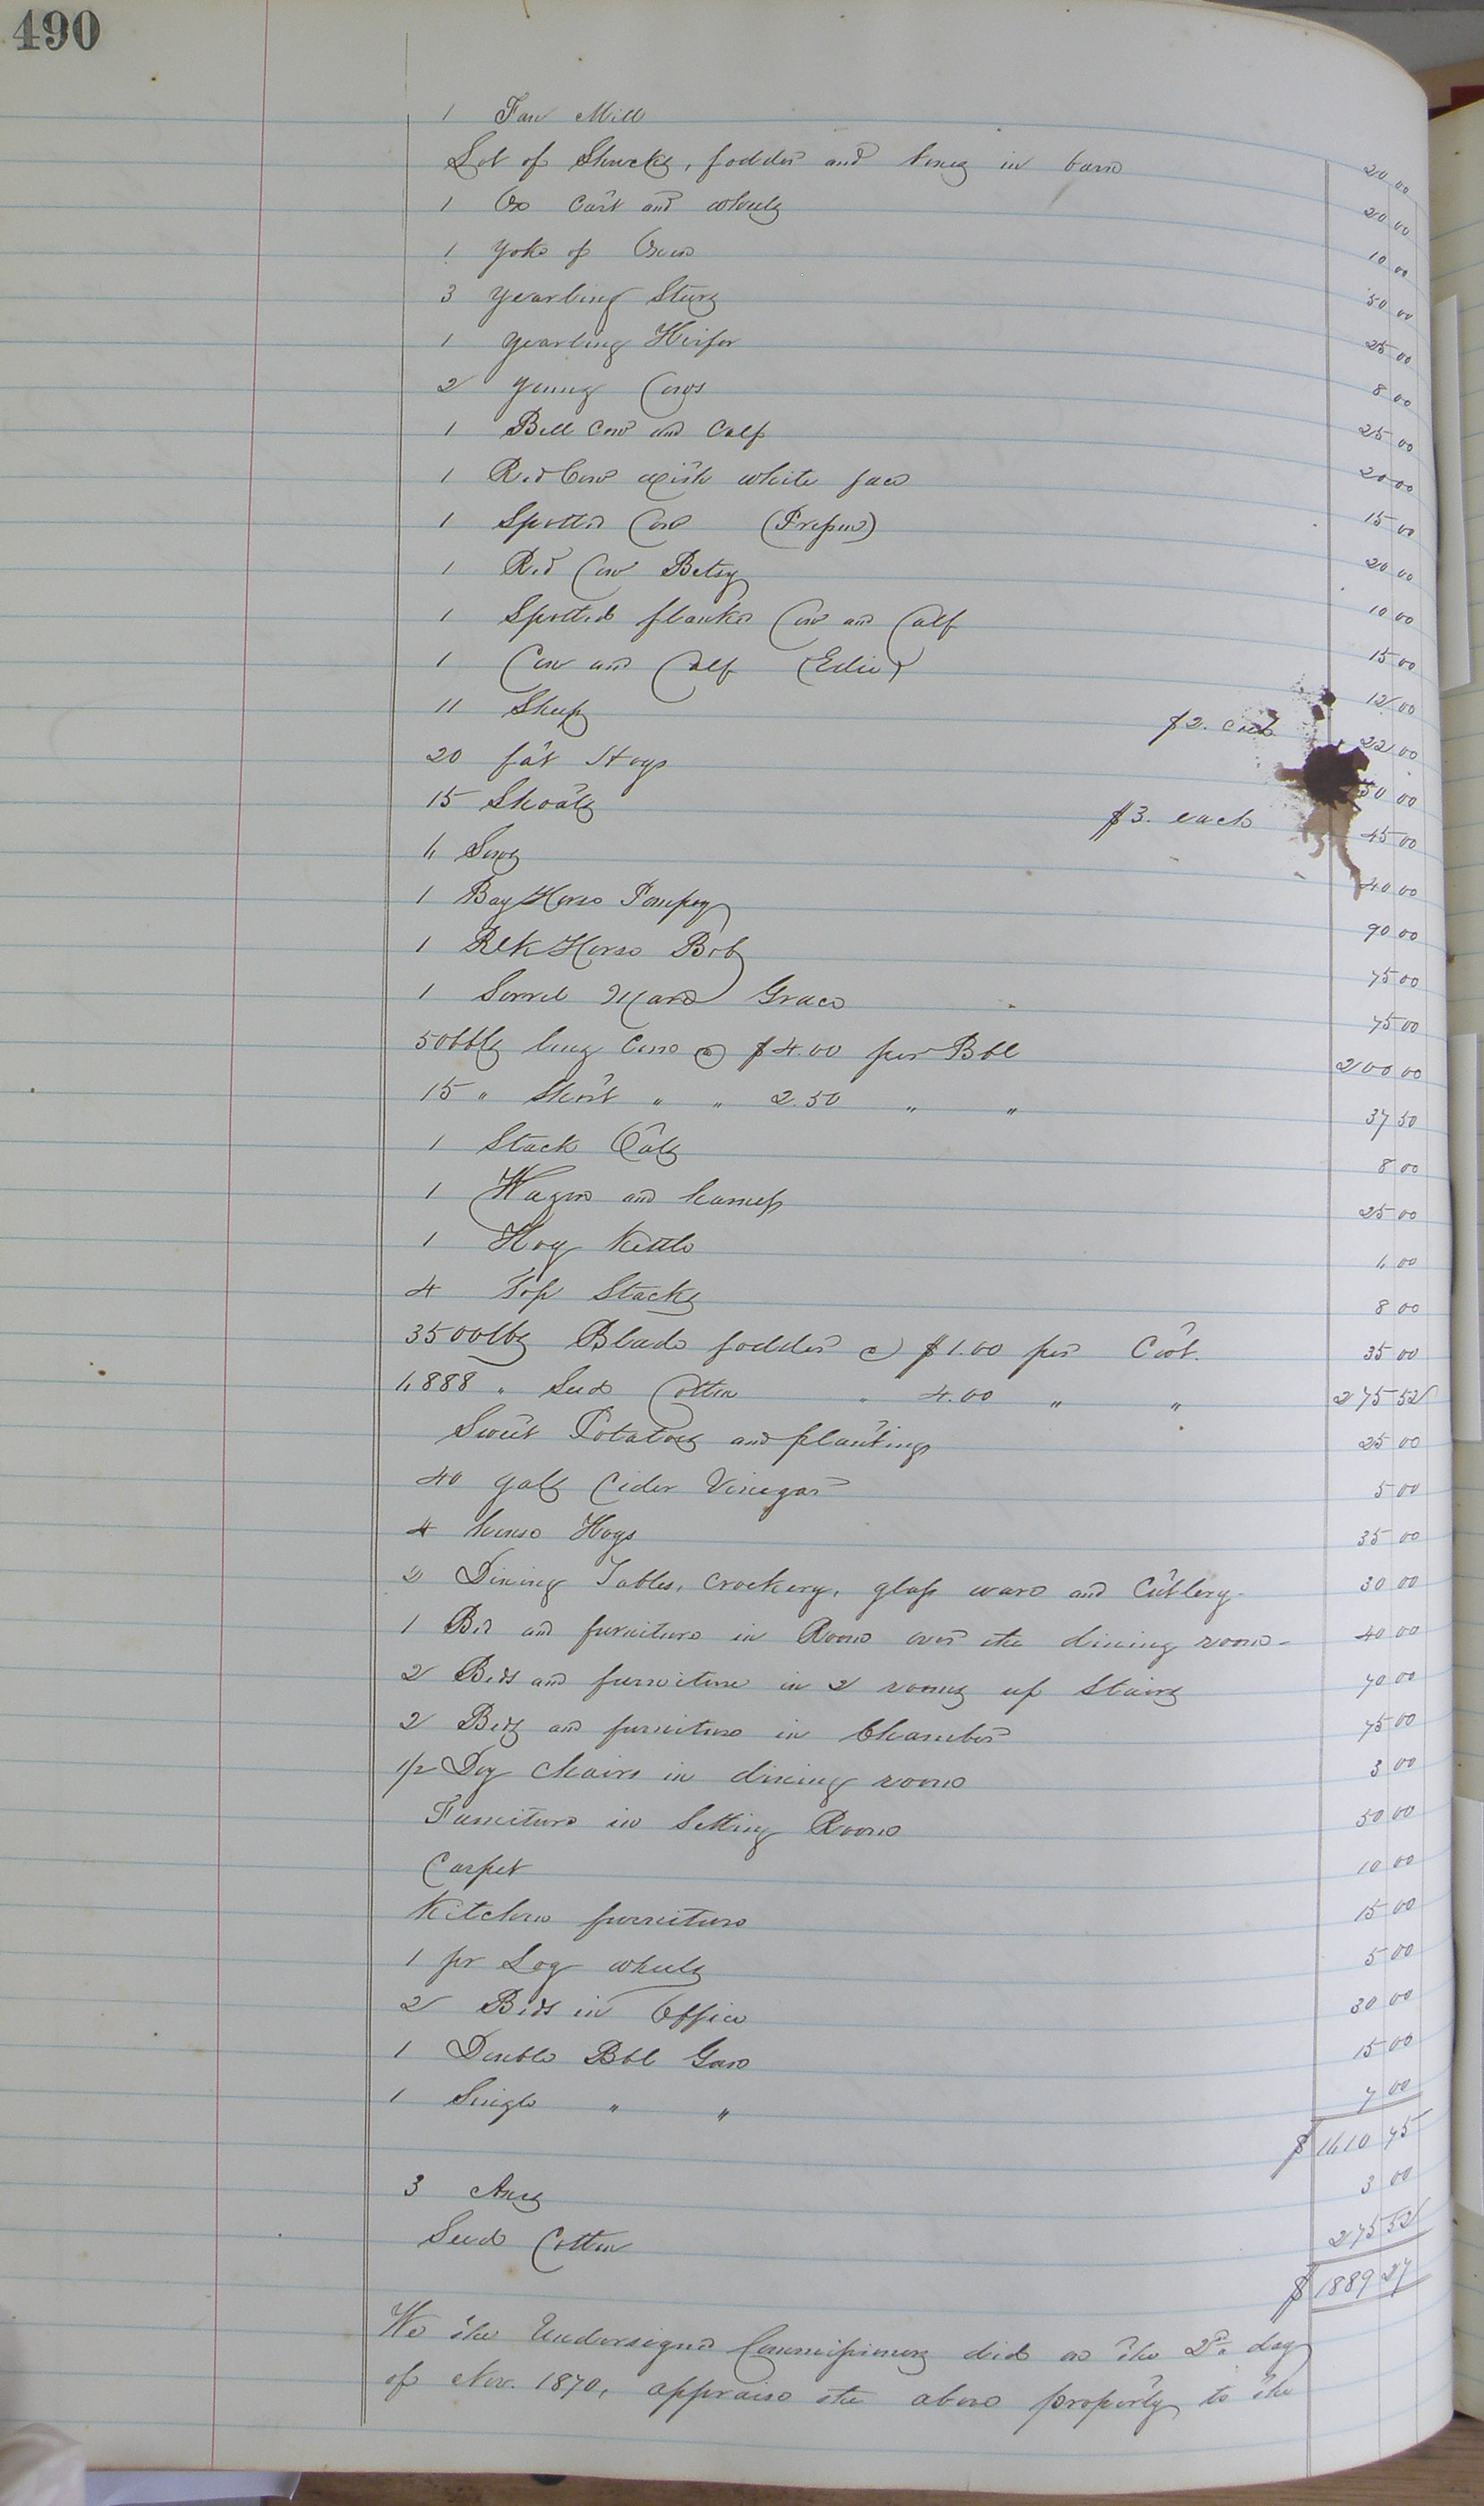 490
1 Fan Mill 20 00
Lot of Shucks, fodder and in barn 20 00
1 Ox Cart and wheels 10 00
1 Yoke of Oxen 50 00
3 Yearling Steers 25 00
1 Yearling Heifer 8 00
2 Young Cows 25 00
1 Bell Cow and Calf 20 00
1 Red Cow with white face 15 00
1 Spotted Cow 20 00
1 Red Cow Betsy 10 00
1 Spotted flanked Cow and Calf 15 00
1 Cow and Calf 12 00
11 Sheep $2. each 22 00
20 fat Hogs 50 00
15 Shoats $3. each 45 00
6 Sows 40 00
1 Bay Horse Pompey 90 00
1 Blk Horse Bob 75 00
1 Sorrel Mare Grace 75 00
50 bbls long Corn @ $4.00 per Bbl 200 00
15 " Short " " 2.50 " " 37 50
1 Stack Oats 8 00
1 Wagon and harness 25 00
1 Hog Kettle 6 00
4 Top Stacks 8 00
3500 lbs Blade fodder @ $1.00 per Cwt. 35 00
6888 " Seed Cotton " 4.00 " " 275 52
Sweet Potatoes and plantings 25 00
40 galls Cider Vinegar 5 00
4 house Hogs 35 00
2 Dining Tables, crockery, glass ware and Cutlery 30 00
1 Bed and furniture in Room over the dining room 40 00
2 Beds and furniture in 2 rooms up Stairs 70 00
2 Beds and furniture in Chamber 75 00
1/2 Doz chairs in dining room 3 00
Furniture in Setting Room 50 00
Carpet 10 00
Kitchen furniture 15 00
1 pr Log wheels 5 00
2 Beds in Office 30 00
1 Double Bbl Gun 15 00
1 Single " " 7 00
$ 1610 75
3 Axes 3 00
Seed Cotton 275 52
$ 1889 27
We the Undersigned Commissioners did on the 2d day
of Nov. 1870, appraise the above property to the